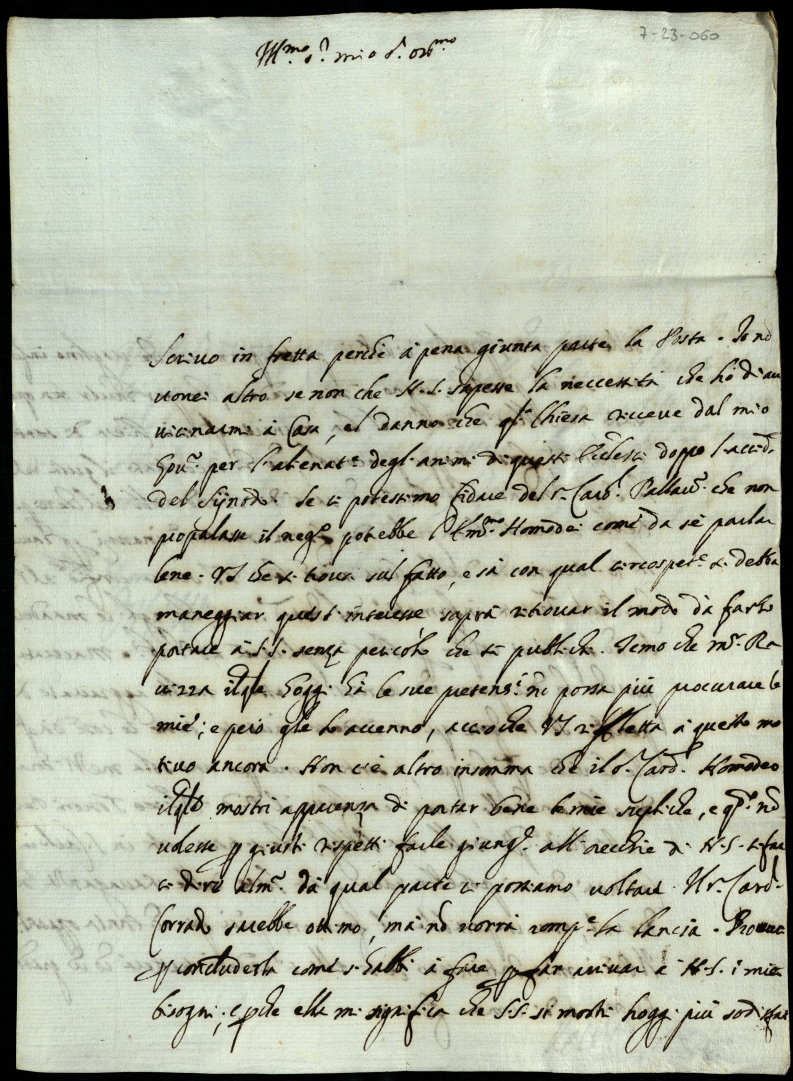 7-23-060
Ill.mo s.r mio s.r oss.mo
Scriuo in fretta perche a pena giunta parte la Posta. Io nõ
altro se non che N. S. sapesse la neccessità che hò di au
uicinarmi à Casa, el danno che q.sta Chiesa riceue dal mio
Gou.o per l'alienat.e degl'animi di questi Eccles.ci doppo l'accid.e
del Synodo. Se ci potessimo fidare del s.r Card. Pallau.o che non
propalasse il neg.o potrebbe l'Em.mo Homodei come da se parlar
bene. VS che si troua sul fatto, e sà con qual circospet.e si debba
maneggiar quest'interesse saprà ritrouar il modo da farlo
portare à S.S. senza pericolo che si publichi. Temo che m.r Ra
uizza il q.le hoggi hà le sue pretens.ni nõ possa più procurare le
mie; e però gle lo accenno, accioche VS rifletta à questo mo
tiuo ancora. Non c'è altro insomma che il s.r Card. Homodeo
il q.le mostri apparenza di portar bene le mie suppliche, e q.do nõ
uolesse p giusti rispetti farle giung.e all'orecchie di N. S. si fac
ci dire alm.o da qual parte ci possiamo uoltare. Il s.r Card.
Corrado sarebbe ottimo, mà nõ uorrà romp.e la lancia.
p concluderla come s'habbi à fare p far arriuar à N. S. i miei
bisogni; e pche ella mi significa che S.S. si mostri hoggi più sodisfat